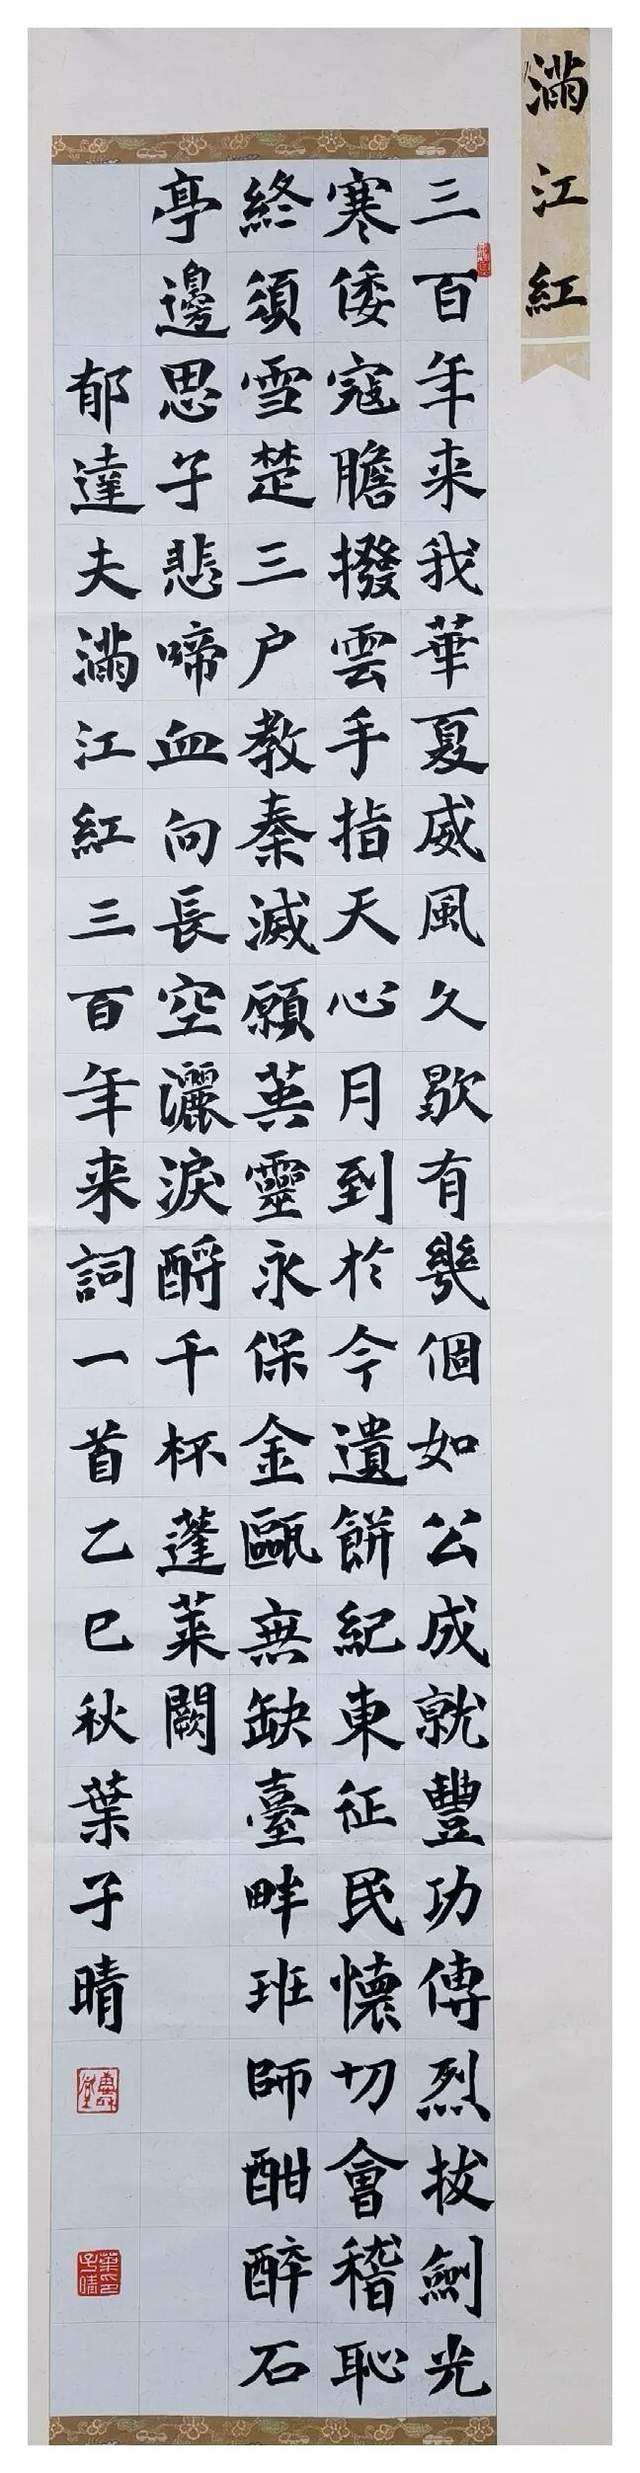 滿江紅
三百年来我華夏威風久歇有幾個如公成就豐功傳烈拔劍光
寒倭寇膽撥雲手指天心月到於今遺餅紀東征民懷切會稽恥
終須雪楚三户教秦滅願英靈永保金甌無缺臺畔班師酣醉石
亭邊思子悲啼血向長空灑淚酹千杯蓬萊闕
郁達夫滿江紅三百年来詞一首乙巳秋葉子晴
葉子晴印